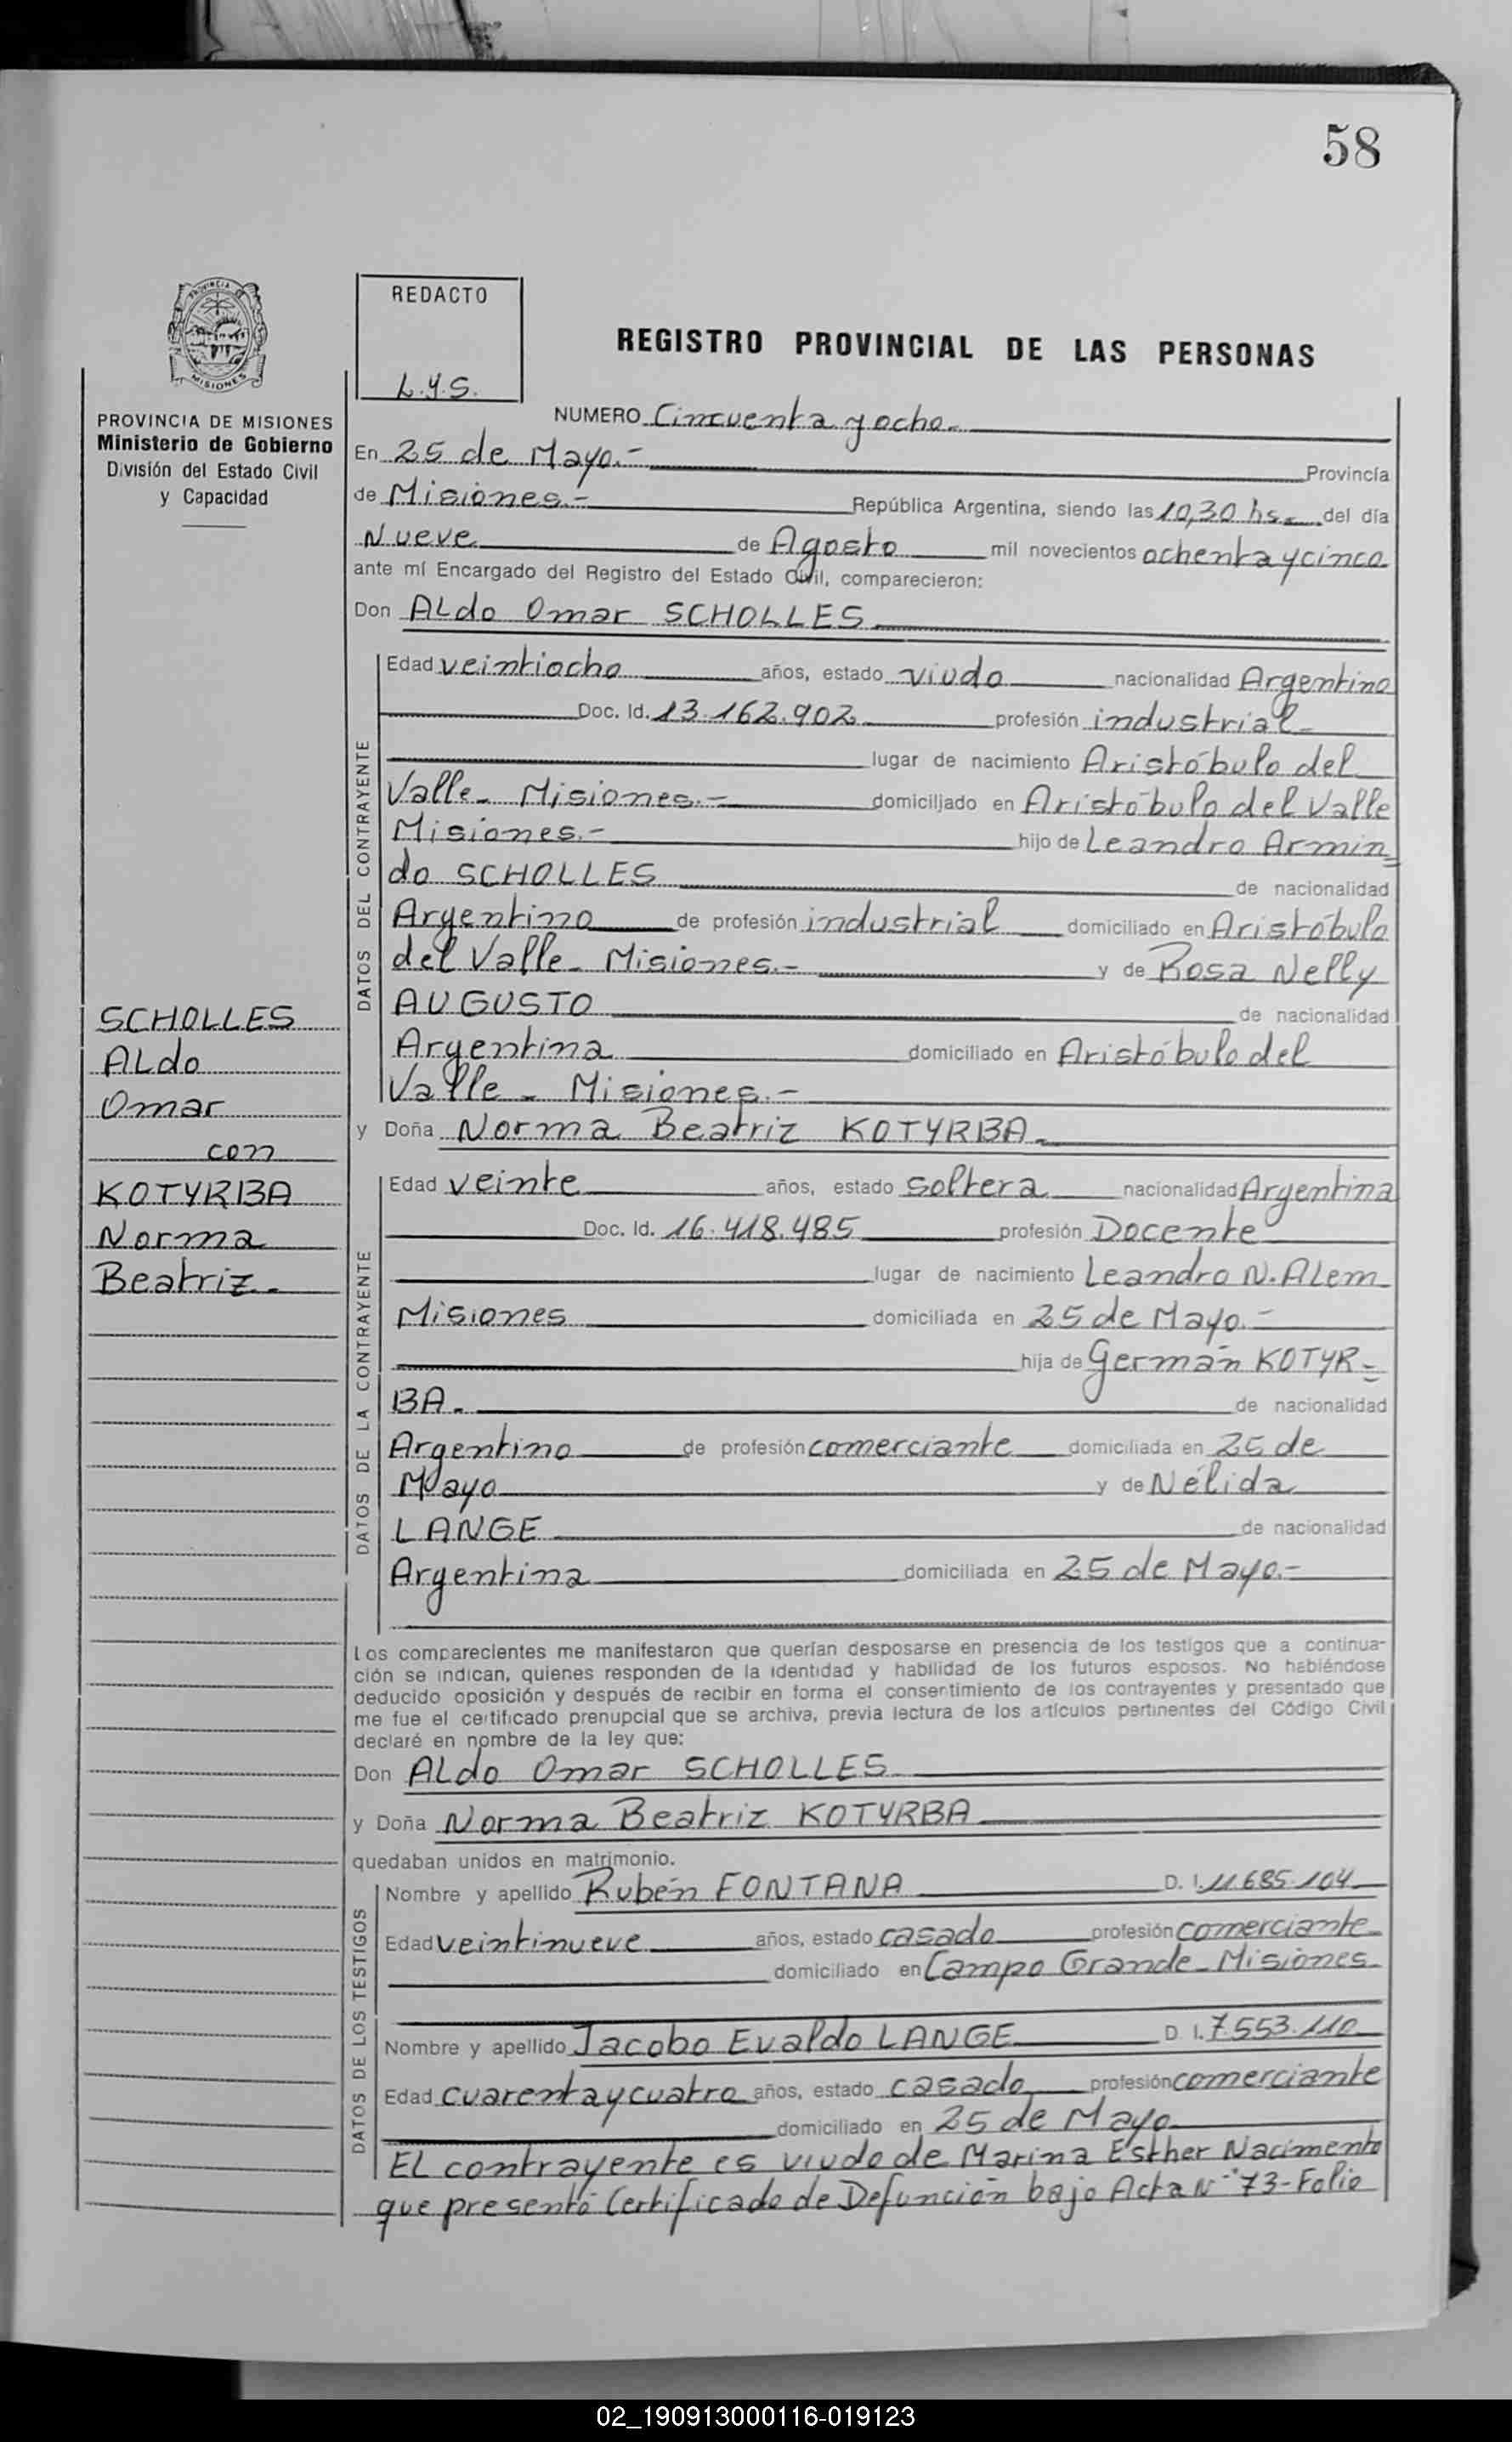 58
PROVINCIA DE MISIONES
REDACTO
L.Y.S.
REGISTRO PROVINCIAL DE LAS PERSONAS
PROVINCIA DE MISIONES
Ministerio de Gobierno
División del Estado Civil
y Capacidad
NUMERO Cincuenta y ocho.-
En 25 de Mayo.- Provincia
de Misiones.- República Argentina, siendo las 10,30 hs. del día
Nueve de Agosto mil novecientos ochenta y cinco
ante mí Encargado del Registro del Estado Civil, comparecieron:
Don ALdo Omar SCHOLLES
DATOS DEL CONTRAYENTE
Edad veintiocho años, estado viudo nacionalidad Argentino
Doc. Id. 13.162.902 profesión industrial
lugar de nacimiento Aristóbulo del
Valle - Misiones.- domiciliado en Aristóbulo del Valle
Misiones.- hijo de Leandro Armin=
do SCHOLLES de nacionalidad
Argentino de profesión industrial domiciliado en Aristóbulo
del Valle - Misiones.- y de Rosa Nelly
AUGUSTO de nacionalidad
Argentina domiciliado en Aristóbulo del
Valle - Misiones.-
y Doña Norma Beatriz KOTYRBA.
SCHOLLES
ALdo
Omar
con
KOTYRBA
Norma
Beatriz.-
DATOS DE LA CONTRAYENTE
Edad veinte años, estado soltera nacionalidad Argentina
Doc. Id. 16.418.485 profesión Docente
lugar de nacimiento Leandro N. ALem
Misiones domiciliada en 25 de Mayo.-
hija de Germán KOTYR=
BA. de nacionalidad
Argentino de profesión comerciante domiciliada en 25 de
Mayo y de Nélida
LANGE de nacionalidad
Argentina domiciliada en 25 de Mayo.-
Los comparecientes me manifestaron que querían desposarse en presencia de los testigos que a continua-
ción se indican, quienes responden de la identidad y habilidad de los futuros esposos. No habiéndose
deducido oposición y después de recibir en forma el consentimiento de los contrayentes y presentado que
me fue el certificado prenupcial que se archiva, previa lectura de los artículos pertinentes del Código Civil
declaré en nombre de la ley que:
Don ALdo Omar SCHOLLES
y Doña Norma Beatriz KOTYRBA
quedaban unidos en matrimonio.
DATOS DE LOS TESTIGOS
Nombre y apellido Rubén FONTANA D. I. 11.685.104
Edad veintinueve años, estado casado profesión comerciante
domiciliado en Campo Grande - Misiones
Nombre y apellido Jacobo Evaldo LANGE D. I. 7.553.110
Edad cuarenta y cuatro años, estado casado profesión comerciante
domiciliado en 25 de Mayo
EL contrayente es viudo de Marina Esther Nacimento
que presentó Certificado de Defunción bajo Acta N° 73-Folio
02_190913000116-019123